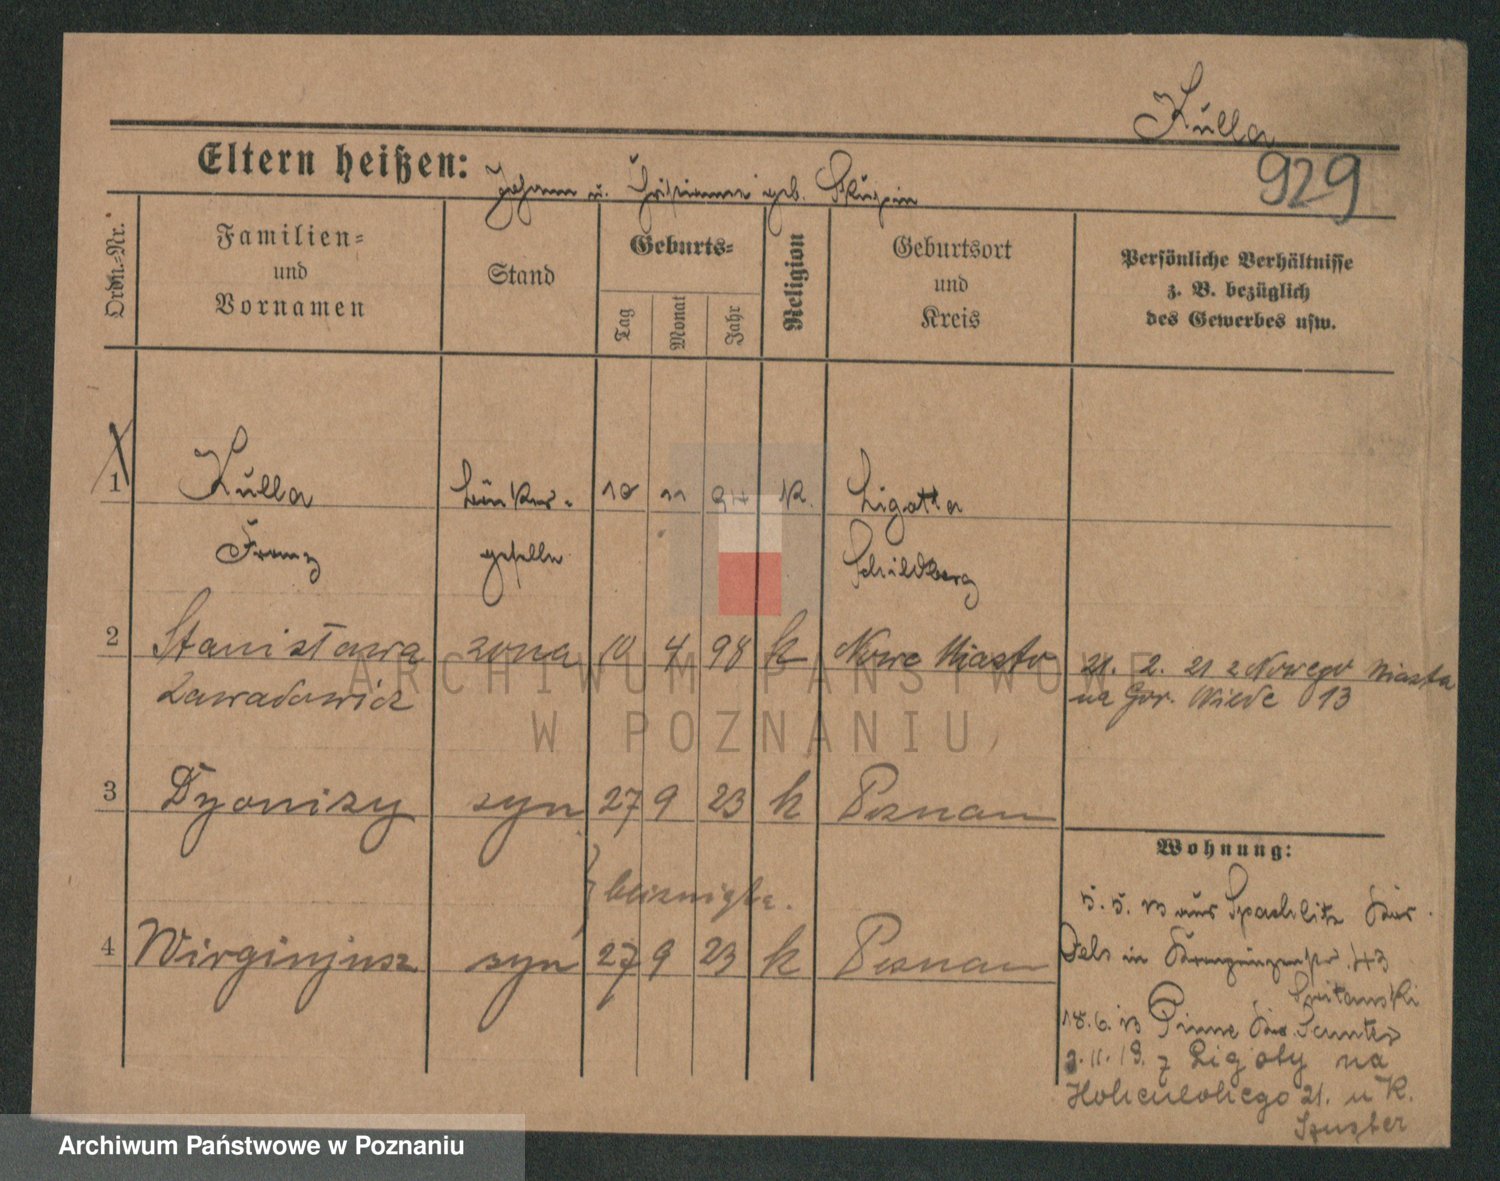 Kulla
929
Eltern heißen: Johann u. geb. Skupin
Ordn.-Nr.
Familien-
und
Vornamen
Stand
Geburts-
Tag
Monat
Jahr
Religion
Geburtsort
und
Kreis
Persönliche Verhältnisse
z. B. bezüglich
des Gewerbes usw.
1 Kulla 10 11 94 K. Ligotta
Franz geselle Schildberg
2 Stanisława żona 10 4 98 k Nowe Miasto 21. 2. 21 z Nowego Miasta
Zawadowicz na Gór. Wilde 13
3 Dyonizy syn 27 9 23 k Poznań
bliźnięta.
4 Wirginjusz syn 27 9 23 k Poznań
Wohnung:
5. 5. 13 aus Kr.
Oels in 43
18. 6. 13 Pinne Kr. Samter
3. 11. 19. z Ligoty na
Hohenlohego 21. u K.
Szuster
ARCHIWUM PAŃSTWOWE
W POZNANIU
Archiwum Państwowe w Poznaniu